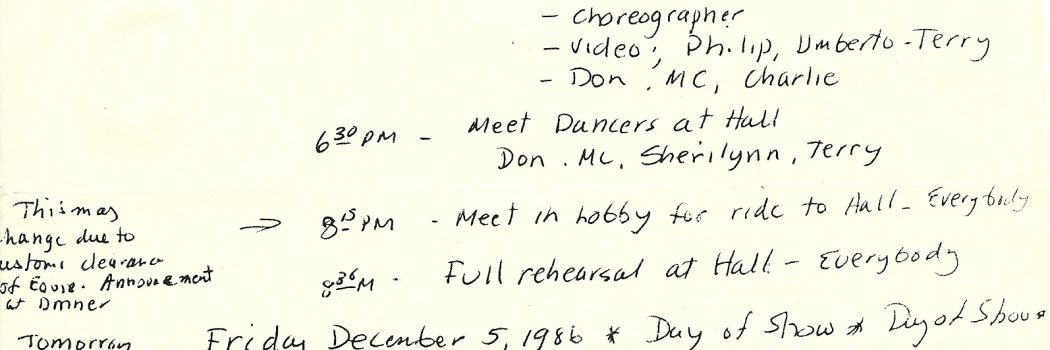 - Choreographer
- Video; Philip, Umberto - Terry
- Don . MC, Charlie
6 30 PM - Meet Dancers at Hall
Don . MC. Sherilynn, Terry
This may
hange due to
ustoms clearance
of Equie. Announcement
at Dinner
→ 8 15 PM - Meet in Lobby for ride to Hall - Everybody
8 30 M - Full rehearsal at Hall - Everybody
Tomorrow Friday December 5, 1986 * Day of Show * Day of Show *